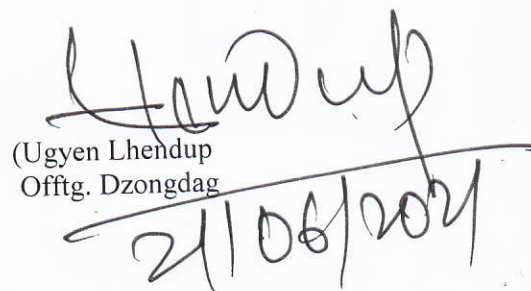 (Ugyen Lhendup
Offtg. Dzongdag
21/06/2021